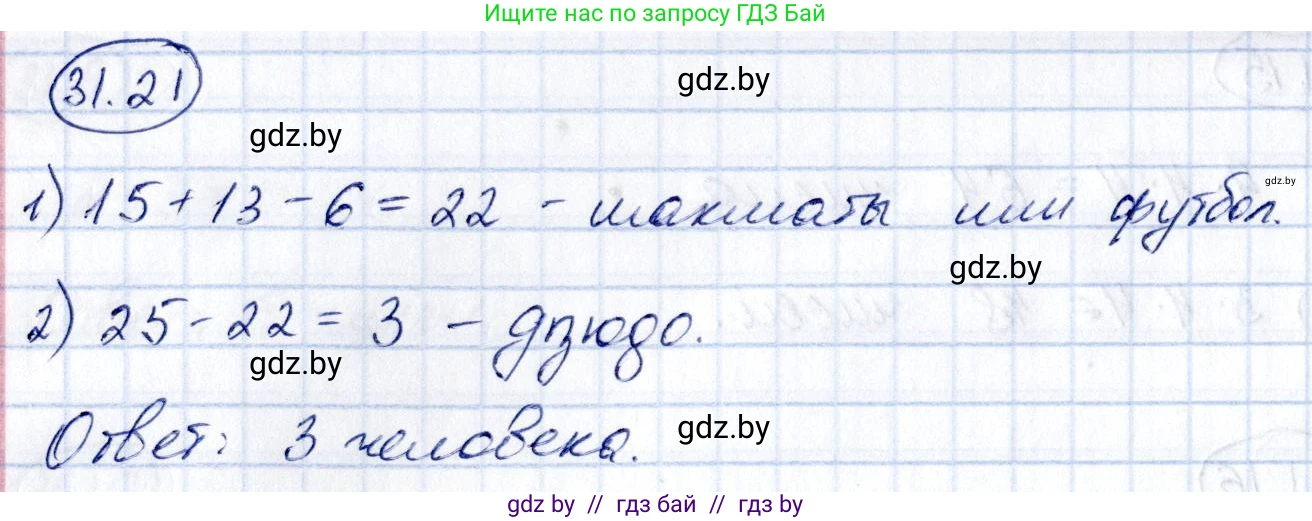 Ищите нас по запросу ГДЗ Бай
31.21
gdz.by
gdz.by
gdz.by
1) 15 + 13 - 6 = 22 - шахматы или футбол.
gdz.by
2) 25 - 22 = 3 - дзюдо.
gdz.by
gdz.by
Ответ: 3 человека.
gdz.by // гдз бай // gdz.by